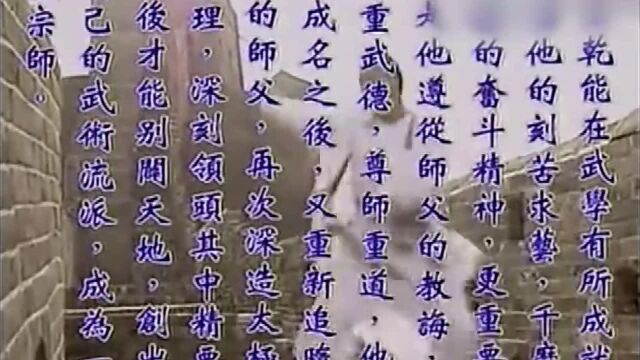 乾能在武學有所成就
他的刻苦求藝，千磨
的奮斗精神，更重要
他遵從師父的教誨，
重武德，尊師重道，他
成名之後，又重新追隨
的師父，再次深造太極
理，深刻領頭其中精要
後才能別開天地，創出
己的武術流派，成為一
宗師。